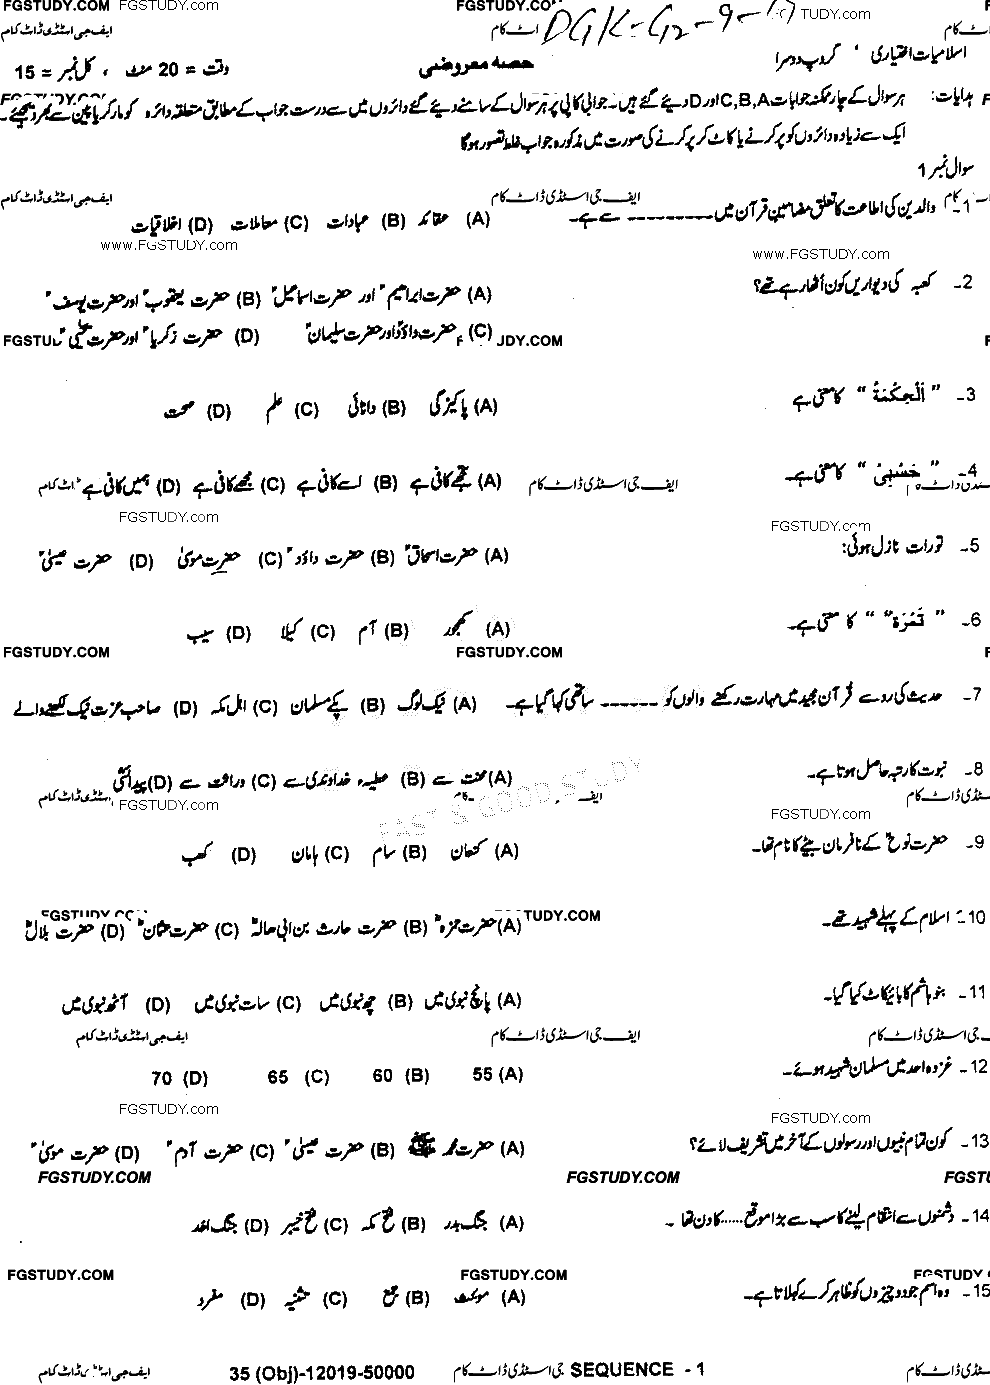 FGSTUDY.COM FGSTUDY.COM FGSTUDY.CO DGK-G2-9- TUDY.com
ایف جی اسٹڈی ڈاٹ کام
اسلامیات اختیاری ، گروپ دوسرا
حصہ معروضی
وقت = 20 منٹ ، کل نمبر = 15
ہدایات: ہر سوال کے چار ممکنہ جوابات C,B,A اور D دیئے گئے ہیں۔ جوابی کاپی پر ہر سوال کے سامنے دیئے گئے دائروں میں سے درست جواب کے مطابق متعلقہ دائرہ کو مارکر یا پین سے بھر دیجئے۔
ایک سے زیادہ دائروں کو پر کرنے یا کاٹ کر پر کرنے کی صورت میں مذکورہ جواب غلط تصور ہوگا
سوال نمبر 1
ایف جی اسٹڈی ڈاٹ کام ایف جی اسٹڈی ڈاٹ کام
1۔ والدین کی اطاعت کا تعلق مضامین قرآن میں ---------- سے ہے۔ (A) عقائد (B) عبادات (C) معاملات (D) اخلاقیات
www.FGSTUDY.com www.FGSTUDY.com
2۔ کعبہ کی دیواریں کون اُٹھا رہے تھے؟ (A) حضرت ابراہیمؑ اور حضرت اسماعیلؑ (B) حضرت یعقوبؑ اور حضرت یوسفؑ
(C) حضرت داؤدؑ اور حضرت سلیمانؑ (D) حضرت زکریاؑ اور حضرت یحییٰؑ
FGSTU JDY.COM
3۔ " اَلْحِكْمَةُ " کا معنی ہے (A) پاکیزگی (B) دانائی (C) علم (D) صحت
4۔ " حَسْبِیْ " کا معنی ہے۔ (A) تجھے کافی ہے (B) اسے کافی ہے (C) مجھے کافی ہے (D) ہمیں کافی ہے
ایف جی اسٹڈی ڈاٹ کام
FGSTUDY.com FGSTUDY.com
5۔ تورات نازل ہوئی: (A) حضرت اسحاقؑ (B) حضرت داؤدؑ (C) حضرت موسیٰؑ (D) حضرت عیسیٰؑ
6۔ " تَمْرَةٌ " کا معنی ہے۔ (A) کھجور (B) آم (C) کیلا (D) سیب
FGSTUDY.COM FGSTUDY.COM
7۔ حدیث کی رو سے قرآن مجید میں مہارت رکھنے والوں کو ------ ساتھی کہا گیا ہے۔ (A) نیک لوگ (B) پکے مسلمان (C) اہل مکہ (D) صاحب عزت نیک لکھنے والے
FAST & GOOD STUDY
8۔ نبوت کا رتبہ حاصل ہوتا ہے۔ (A) محنت سے (B) عطیہء خداوندی سے (C) وراثت سے (D) پیدائشی
FGSTUDY.com FGSTUDY.com
9۔ حضرت نوحؑ کے نافرمان بیٹے کا نام تھا۔ (A) کنعان (B) سام (C) ہامان (D) کعب
FGSTUDY.CO TUDY.COM
10۔ اسلام کے پہلے شہید تھے۔ (A) حضرت حمزہؓ (B) حضرت حارث بن ابی ھالہؓ (C) حضرت عثمانؓ (D) حضرت بلالؓ
11۔ بنو ہاشم کا بائیکاٹ کیا گیا۔ (A) پانچ نبوی میں (B) چھ نبوی میں (C) سات نبوی میں (D) آٹھ نبوی میں
ایف جی اسٹڈی ڈاٹ کام ایف جی اسٹڈی ڈاٹ کام
12۔ غزوہ احد میں مسلمان شہید ہوئے۔ (A) 55 (B) 60 (C) 65 (D) 70
FGSTUDY.com FGSTUDY.com
13۔ کون تمام نبیوں اور رسولوں کے آخر میں تشریف لائے؟ (A) حضرت محمد ﷺ (B) حضرت عیسیٰؑ (C) حضرت آدمؑ (D) حضرت موسیٰؑ
FGSTUDY.COM FGSTUDY.COM FGST
14۔ دشمنوں سے انتقام لینے کا سب سے بڑا موقع ...... کا دن تھا ۔ (A) جنگ بدر (B) فتح مکہ (C) فتح خیبر (D) جنگ اُحد
FGSTUDY.COM FGSTUDY.COM FGSTUDY
15۔ وہ اسم جو دو چیزوں کو ظاہر کرے کہلاتا ہے۔ (A) مونث (B) جمع (C) تثنیہ (D) مفرد
ایف جی اسٹڈی ڈاٹ کام 35 (Obj)-12019-50000 جی اسٹڈی ڈاٹ کام SEQUENCE - 1